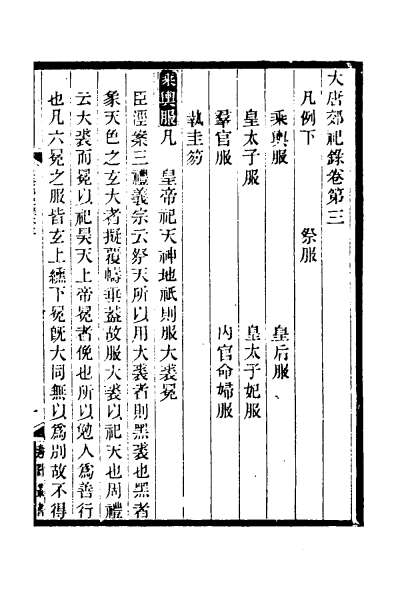 大唐郊祀錄卷第三
凡例下 祭服
乘輿服 皇后服
皇太子服 皇太子妃服
羣官服 內官命婦服
執圭笏
乘輿服凡 皇帝祀天神地祇則服大裘冕
臣涇案三禮義宗云祭天所以用大裘者則黑裘也黑者
象天色之玄大者擬覆幬垂蓋故服大裘以祀天也周禮
云大裘而冕以祀昊天上帝冕者俛也所以勉人爲善行
也凡六冕之服皆玄上纁下冕旣大同無以爲別故不得